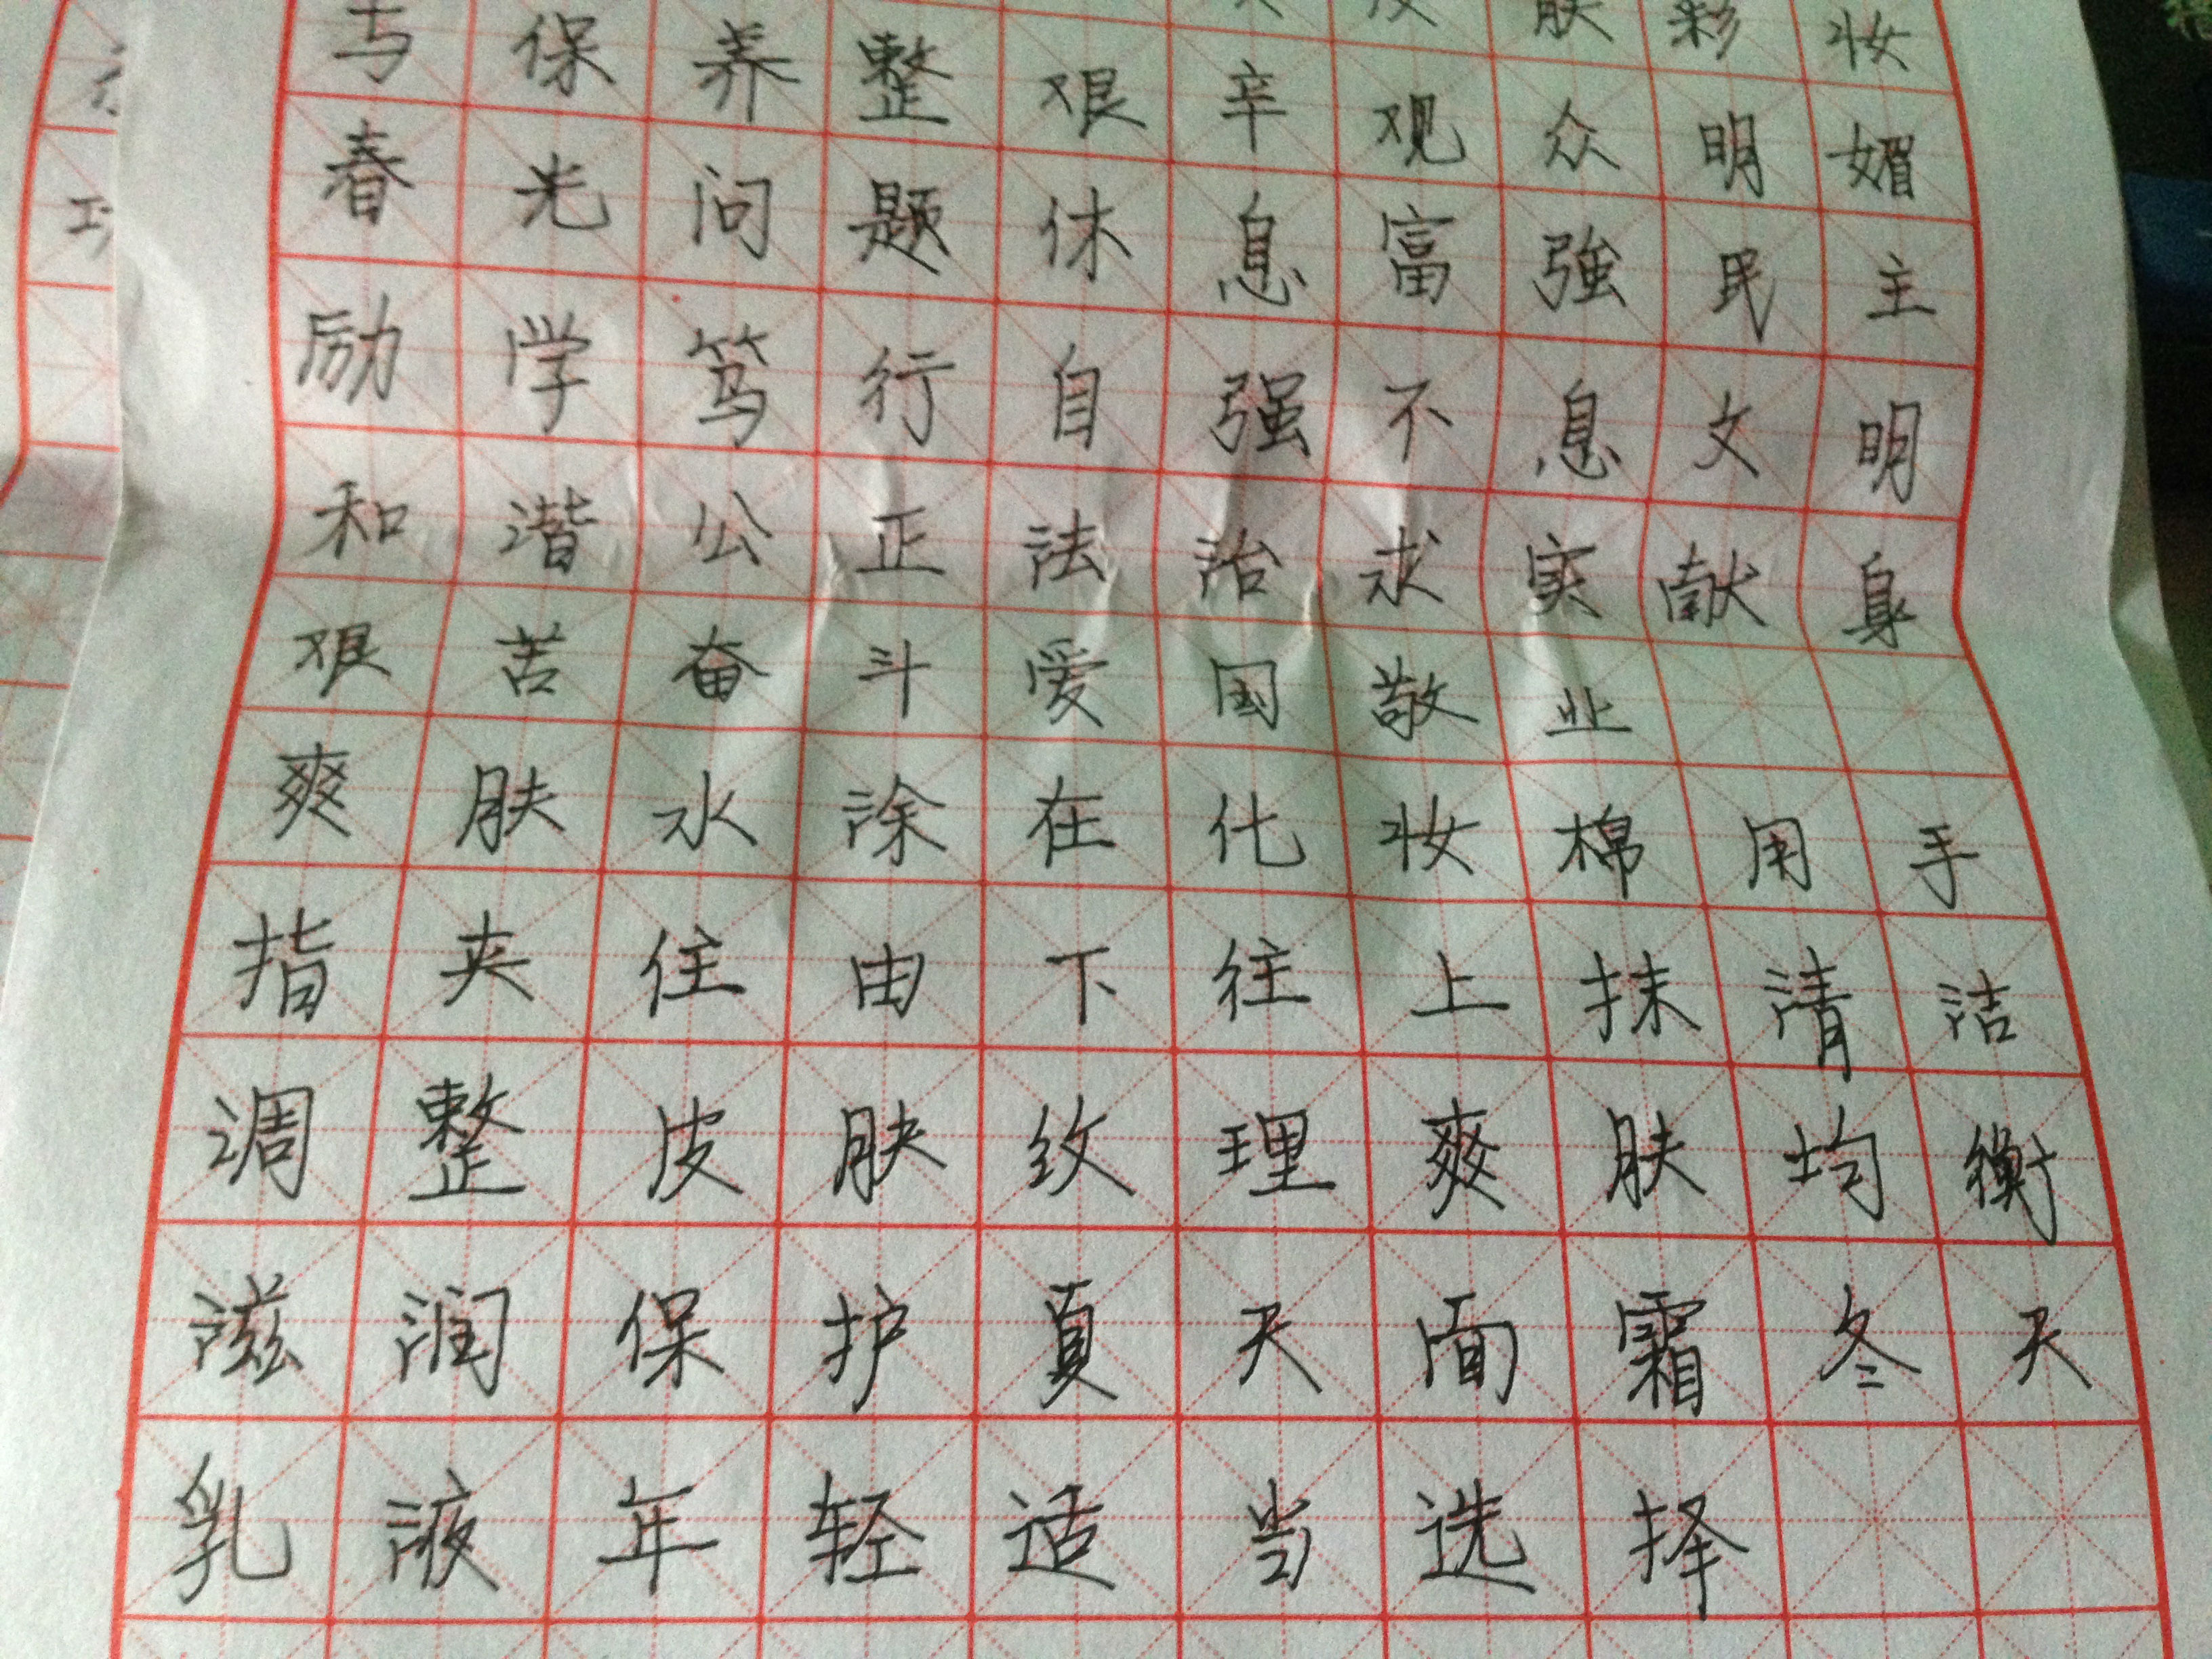 肤彩妆
与保养整艰辛观众明媚
春光问题休息富強民主
励学笃行自强不息文明
和谐公正法治求实献身
艰苦奋斗爱国敬业
爽肤水涂在化妆棉用手
指夹住由下往上抹清洁
调整皮肤纹理爽肤均衡
滋润保护夏天面霜冬天
乳液年轻适当选择